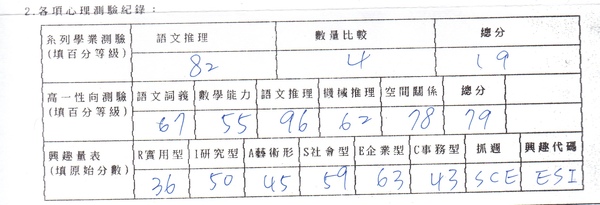 2.各項心理測驗紀錄：
系列學業測驗 語文推理 數量比較 總分
(填百分等級) 82 4 19
高一性向測驗 語文詞義 數學能力 語文推理 機械推理 空間關係 總分
(填百分等級) 67 55 96 62 78 79
興趣量表 R實用型 I研究型 A藝術形 S社會型 E企業型 C事務型 抓週 興趣代碼
(填原始分數) 36 50 45 59 63 43 SCE ESI